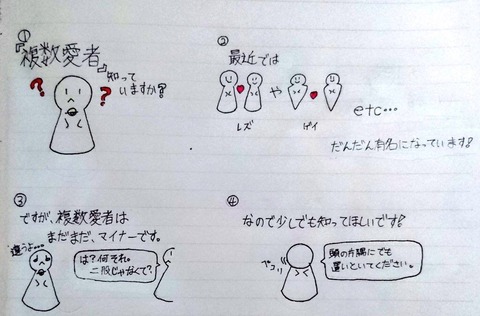 ①
『複数愛者』
知って
いますか？
？
？
②
最近では
や
レズ
ゲイ
etc…
だんだん有名になっています！
③
ですが、複数愛者は
まだまだ、マイナーです。
違うよ…
は？何それ。
二股じゃなくて？
④
なので少しでも知ってほしいです！
ペコリ
頭の片隅にでも
置いといてください。